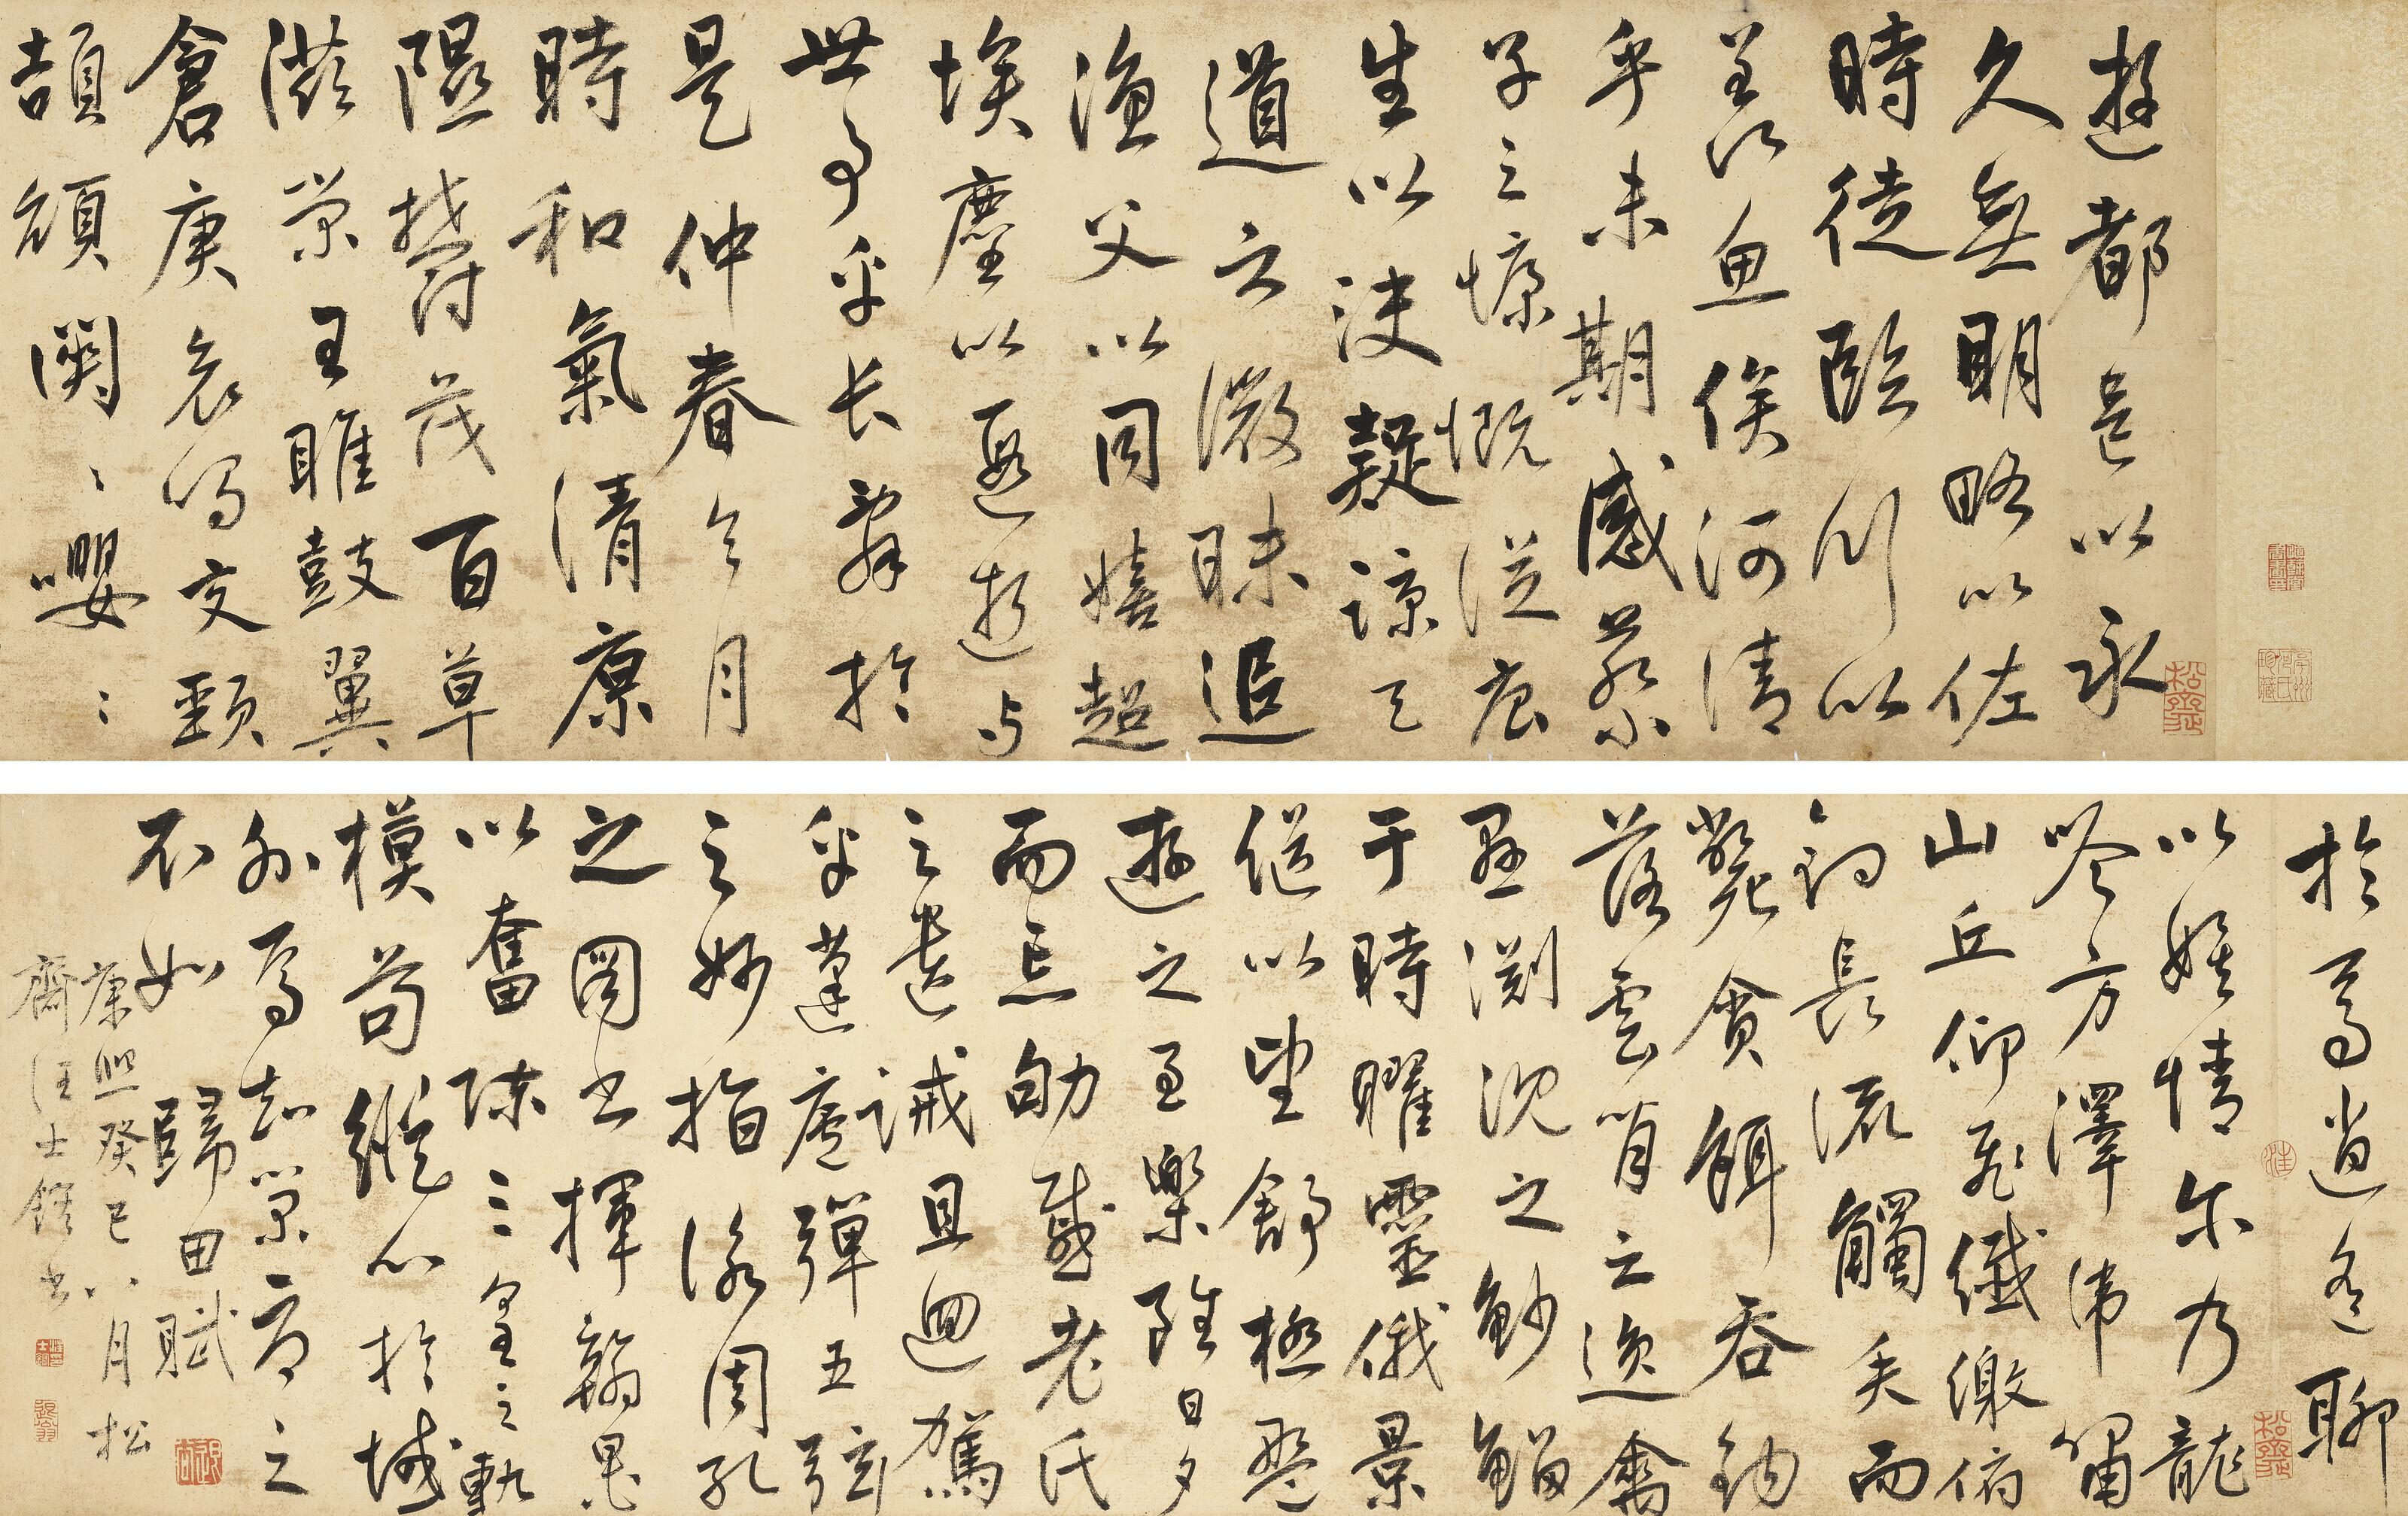 遊都邑以永
久無明略以佐
時徒臨川以
羨魚俟河清
乎未期感蔡
子之慷慨從唐
生以決疑諒天
道之微昧追
漁父以同嬉超
埃塵以遐逝与
世事乎长辭於
是仲春令月
時和氣清原
隰鬱茂百草
滋榮王雎鼓翼
倉庚哀鳴交頸
頡頏關〻嚶〻
於焉逍遙聊
以娛情尔乃龍
吟方澤虎嘯
山丘仰飛纖繳俯
釣長流觸矢而
斃貪餌吞鉤
落雲間之逸禽
懸淵沈之魦鰡
于時曜靈俄景
继以望舒極盤
遊之至樂雖日夕
而忘劬感老氏
之遺誡且迴駕
乎蓬廬彈五弦
之妙指詠周孔
之圖书揮翰墨
以奮陳三皇之軌
模苟縱心於域
外焉知榮辱之
不如 歸田賦
康熙癸巳八月松
齋汪士鋐书